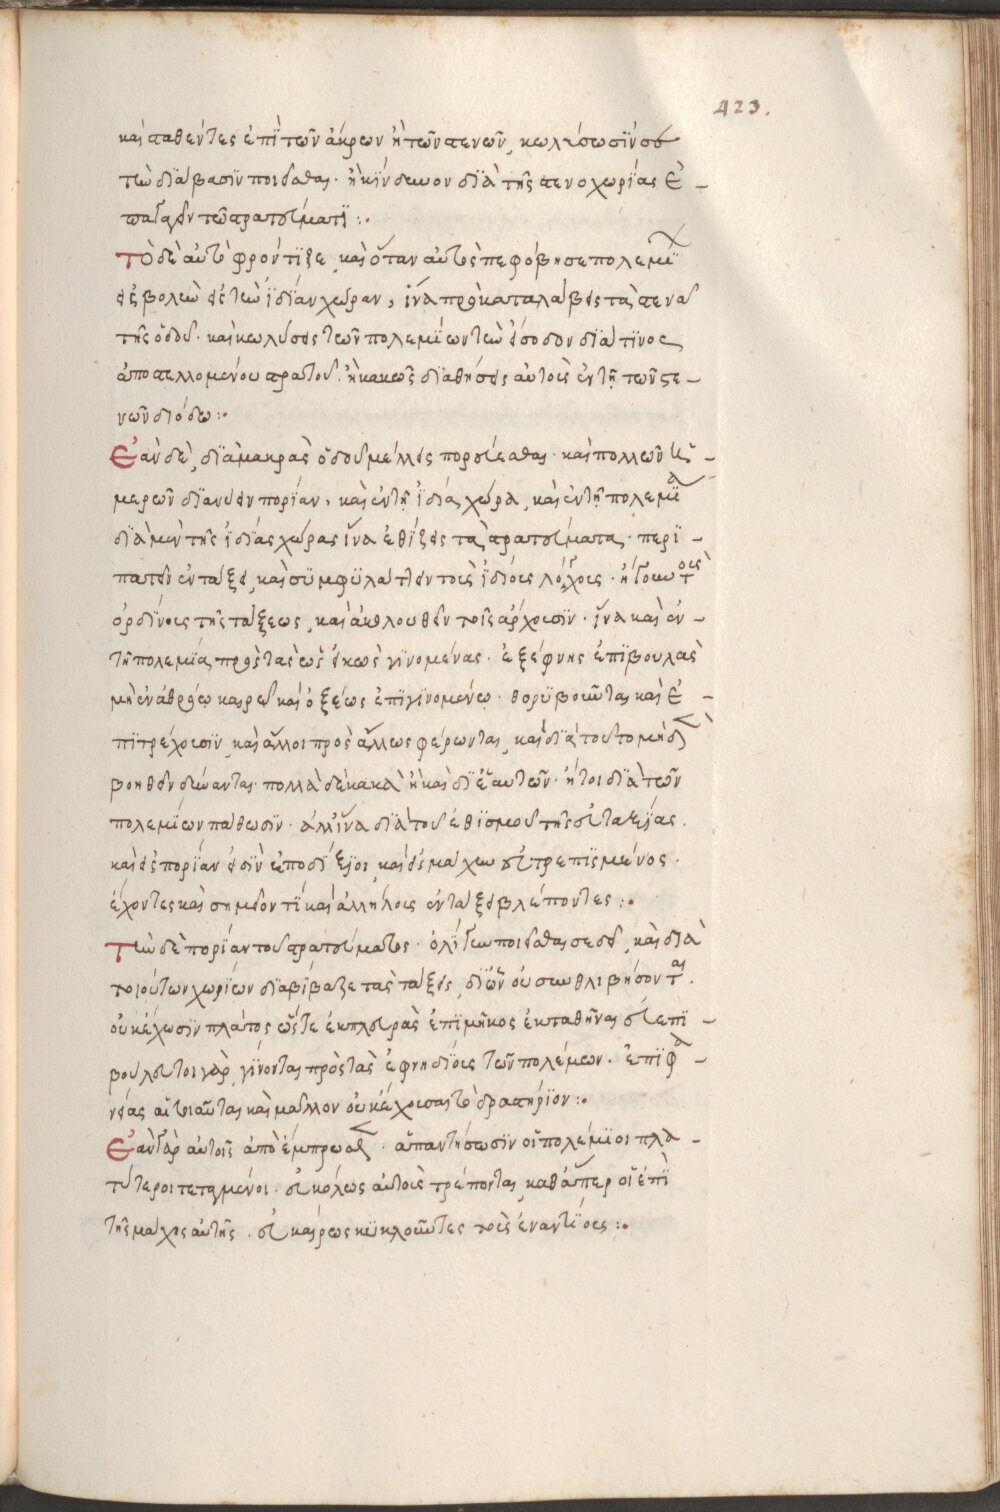 423.
κατασταθέντες ἐπὶ τῶν ἄκρων ἢ τῶν στενῶν, κωλύσωσϊν σε
τὴν διάβασϊν ποιεῖσθαι· ἢ κίνδυνον διὰ τῆς στενοχωρίας ἐ-
παγαγεῖν τῶ στρατεύματϊ :·
Τὸ δὲ αὐτὸ φρόντϊζε, καὶ ὅταν αὐτὸς πεφόβησε πολεμϊ
εἰσβολὴν εἰς τὴν ἰδίαν χώραν, ἵνα προκαταλάβεις τὰ στενὰ
τῆς ὁδοῦ· καὶ κωλύσεις τῶν πολεμίων τὴν εἴσοδον διά τινος
ἀποστελλομένου στρατοῦ· ἢ κακῶς διαθήσεις αὐτοὺς ἐν τῇ τῶν στε-
νῶν διόδω :·
Ἐὰν δὲ, διὰ μακρᾶς ὁδοῦ μέλλεις πορεύεσθαι· καὶ πολλῶν ἡ-
μερῶν διανύειν πορίαν, καὶ ἐν τῇ ἰδίᾳ χώρα, καὶ ἐν τῇ πολεμϊα
διὰ μὲν τῆς ἰδίας χώρας ἵνα ἐθίζεις τὰ στρατεύματα· περϊ-
πατεῖν ἐν τάξει, καὶ συμφυλάττειν τοῖς ἰδίοις λόχοις· ἤγουν τοῖς
ὀρδίνοις τῆς τάξεως, καὶ ἀκολουθεῖν τοῖς ἄρχουσϊν· ἵνα καὶ ἐν
τῇ πολεμία, πρὸς τὰς ὡς εἰκὸς γϊνομένας· ἐξέφνης ἐπϊβουλὰς
μὴ ἐν ἀθρόω καιρῶ καὶ ὀξέως ἐπϊγϊνομένω· θορυβοῦνται καὶ ἐ-
πϊτρέχουσϊν, καὶ ἄλλοι πρὸς ἄλλως φέρωνται, καὶ διὰ τοῦτο μηδὲ
βοηθεῖν δύνανται· πολλὰ δὲ κακὰ ἢ καὶ δϊ ἑαυτῶν· ἤτοι διὰ τῶν
πολεμίων πάθωσϊν· ἀλλ' ἵνα διὰ τοῦ ἐθισμοῦ τῆς εὐταξίας·
καὶ εἰς πορίαν εἰσϊν ἐπιδέξιοι, καὶ εἰς μάχην εὐτρεπισμένος·
ἔχοντες καὶ σημεῖον τϊ καὶ ἀλλήλοις ἐν τάξει βλέποντες :·
Τὴν δὲ πορίαν τοῦ στρατεύματος· ὀλίγην ποιεῖσθαι σε δεῖ, καὶ διὰ
τοιούτων χωρίων διαβίβαζε τὰς τάξεις, δι' ὧν οὐ συνθλιβήσονται·
οὐκ ἔχωσϊν πλάτος ὥστε ἐκ πλευρᾶς ἐπὶ μῆκος ἐκταθῆναι εὐεπϊ-
βούλευτοι γὰρ, γίνονται πρὸς τὰς ἐφνηδίοις τῶν πολέμων· ἐπιφα-
νείας αἱ τοιαῦται καὶ μάλλον οὐκ ἔχουσαι τὸ δραστήριον :·
Ἐὰν γὰρ αὐτοῖς ἀπὸ ἔμπρωσθεν· ἀπαντήσωσϊν οἱ πολέμιοι πλα-
τύτεροι τεταγμένοι· εὐκόλως αὐτοὺς τρέπονται, καθάπερ οἱ ἐπὶ
τῆς μάχης αὐτῆς· εὐκαίρως κυκλοῦντες τοὺς ἐναντίους :·